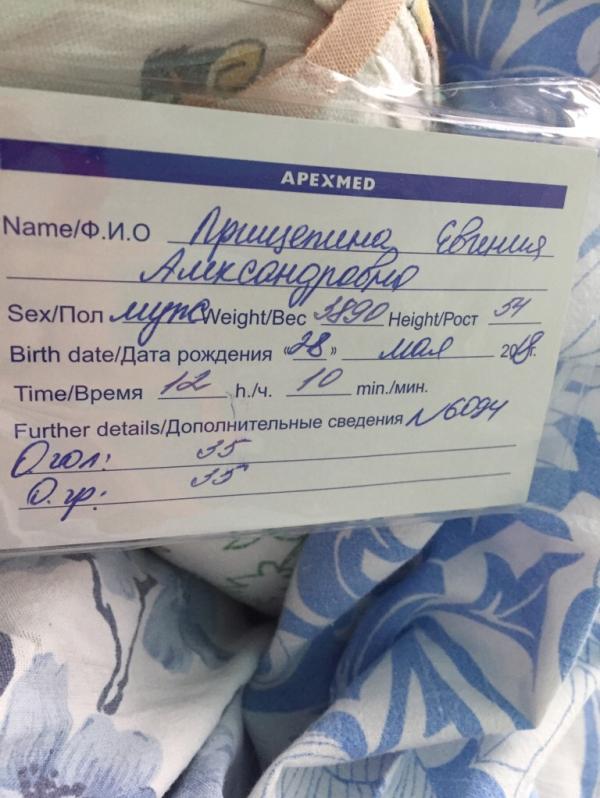 APEXMED
Name/Ф.И.О Прищепина Евгения
Александровна
Sex/Пол муж Weight/Вес 3890 Height/Рост 54
Birth date/Дата рождения «28» мая 2018г.
Time/Время 12 h./ч. 10 min./мин.
Further details/Дополнительные сведения №6094
О гол: 35
О. гр: 35